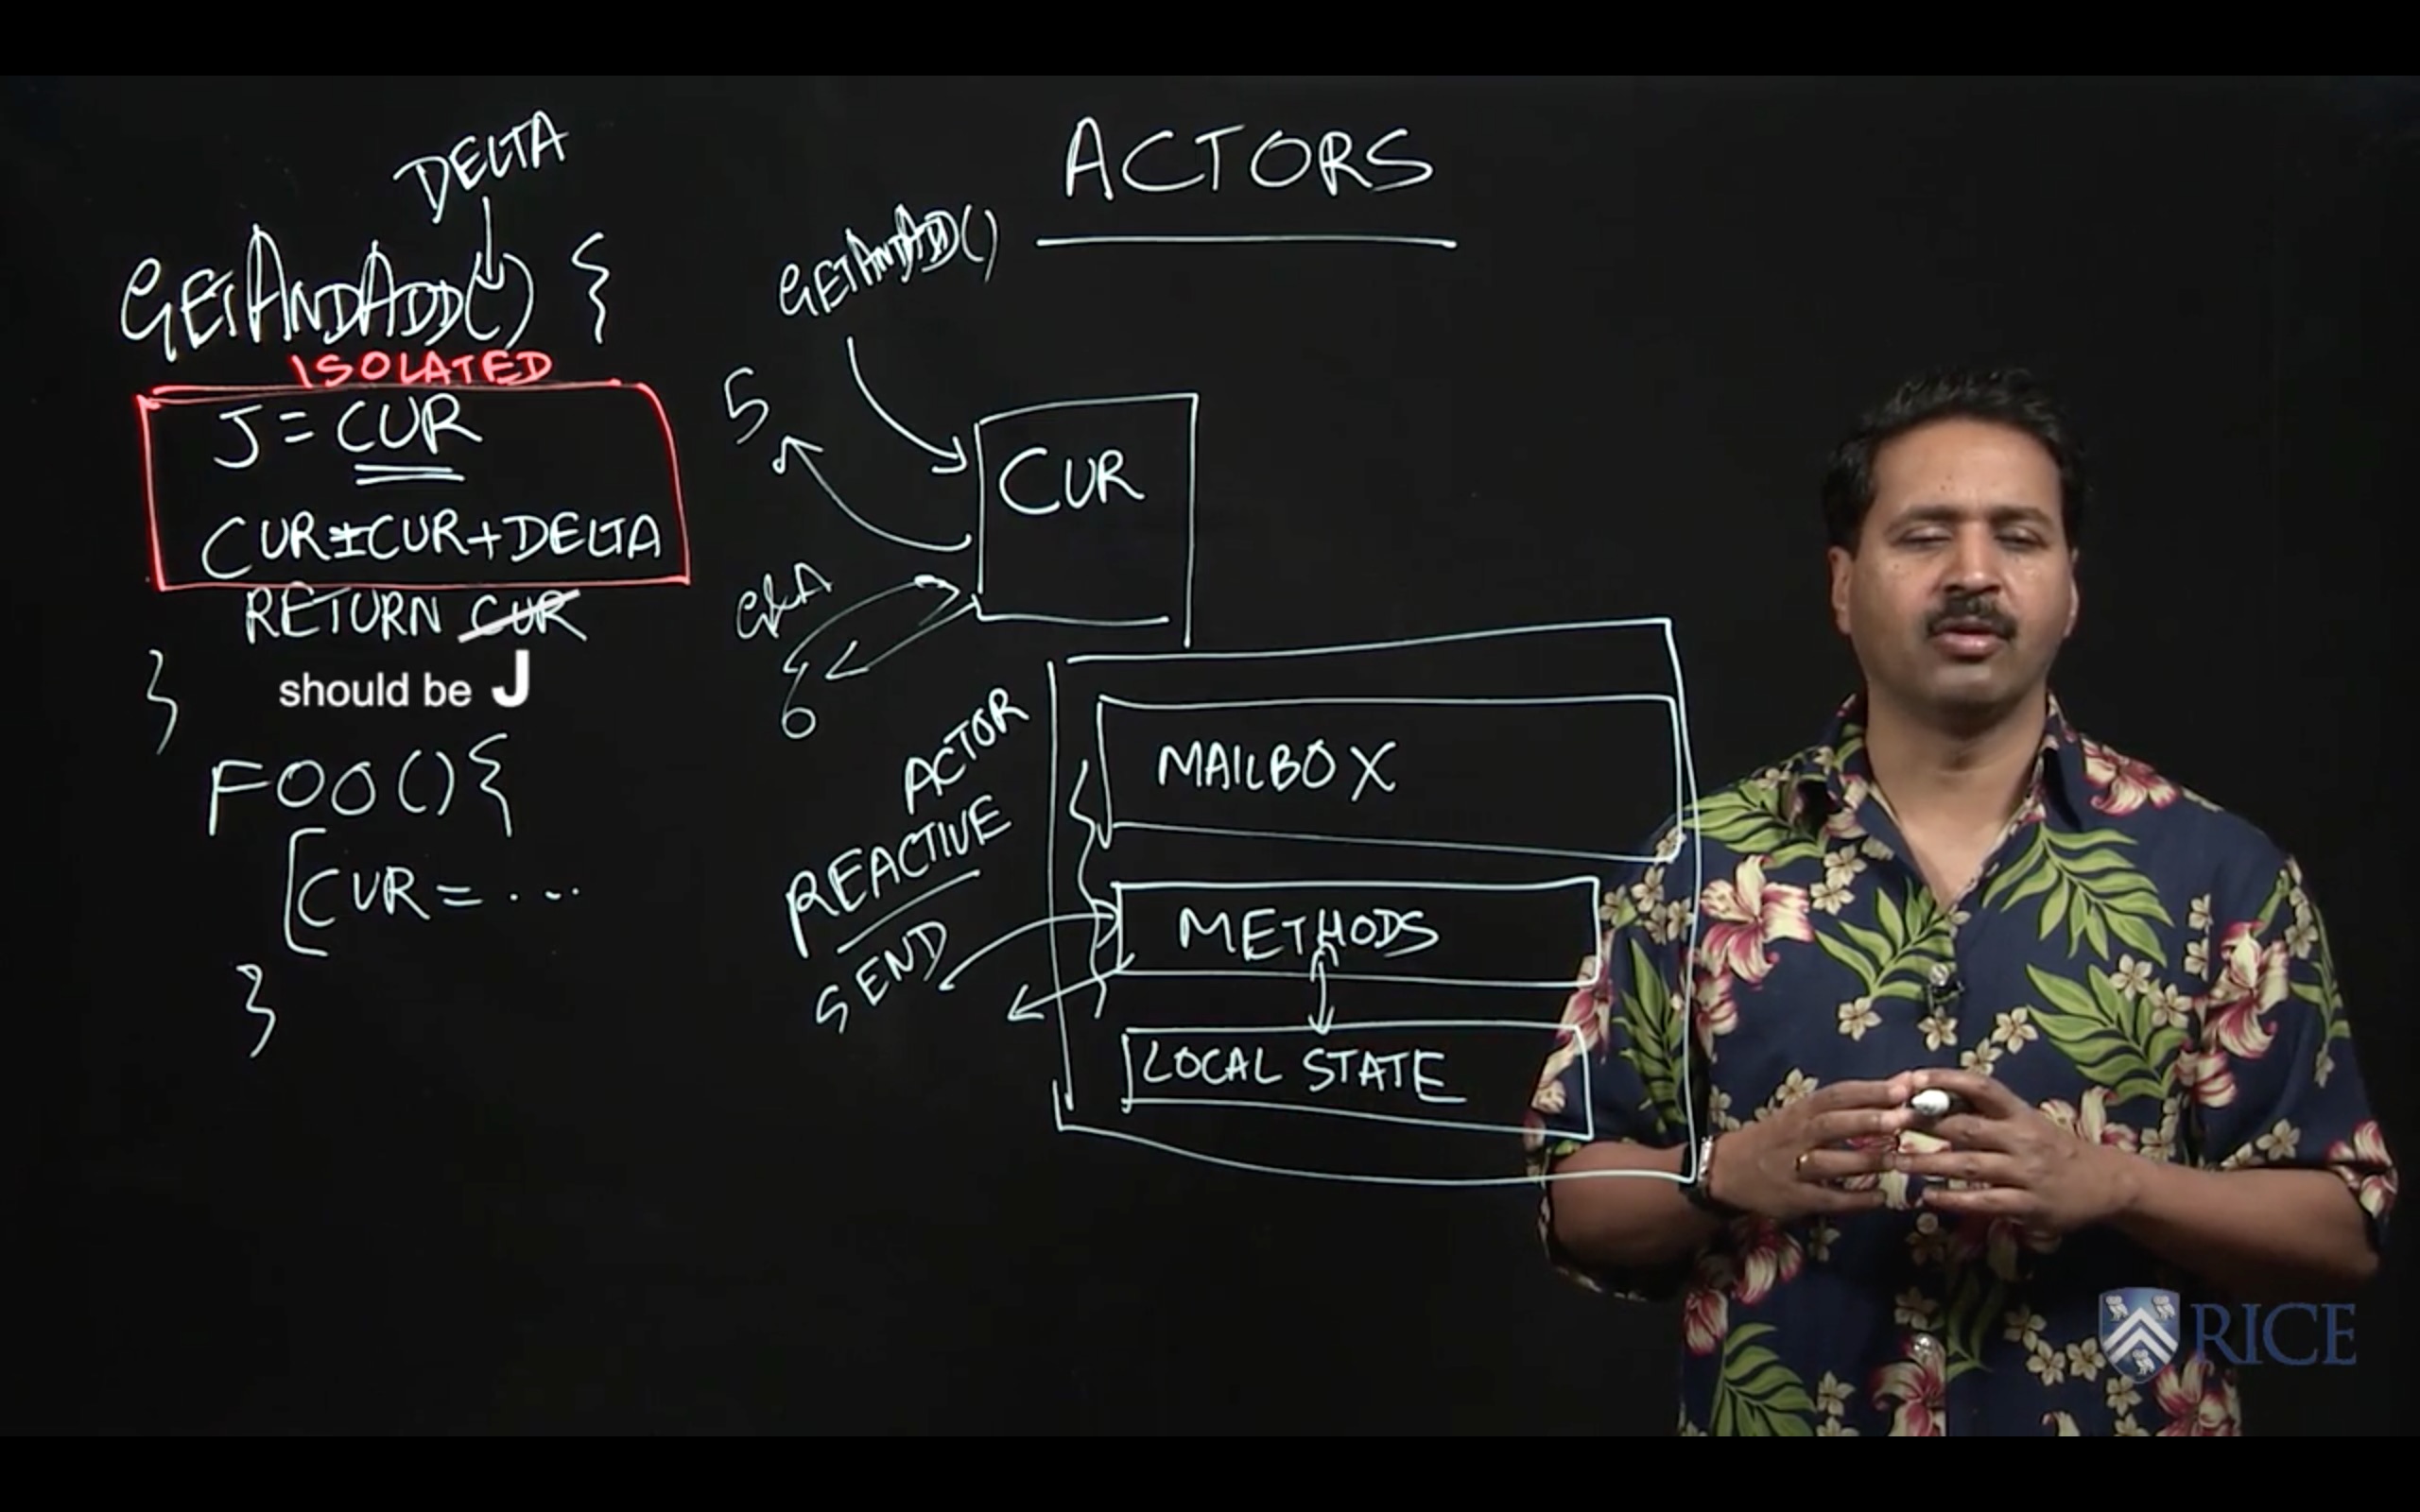 DELTA
GETANDADD() {
ISOLATED
J = CUR
CUR = CUR + DELTA
RETURN CUR
should be J
}
FOO() {
[CUR = ...
}
ACTORS
GETANDADD()
5
CUR
G&A
6
ACTOR
REACTIVE
SEND
MAILBOX
METHODS
LOCAL STATE
RICE